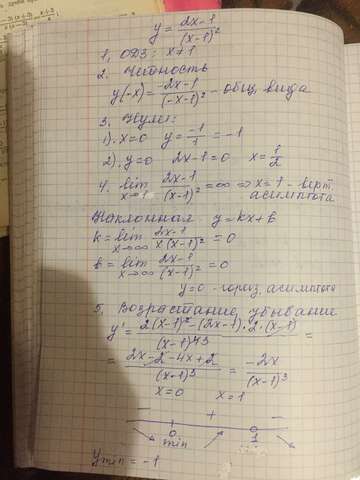 y = (2x-1)/(x-1)²
1. ОДЗ: x≠1
2. Четность
y(-x) = (-2x-1)/(-x-1)² - общ. вида
3. Нули:
1). x=0 y = -1/1 = -1
2). y=0 2x-1=0 x = 1/2
4. lim x→1 (2x-1)/(x-1)² = ∞ ⇒ x=1 - верт. асимптота
Наклонная y=kx+b
k = lim x→∞ (2x-1)/(x(x-1)²) = 0
b = lim x→∞ (2x-1)/(x-1)² = 0
y=0 - гориз. асимптота
5. Возрастание, убывание
y' = (2(x-1)² - (2x-1)·2·(x-1))/(x-1)⁴³ =
= (2x-2-4x+2)/(x-1)³ = -2x/(x-1)³
x=0 x=1
- + -
0 1
min
y min = -1